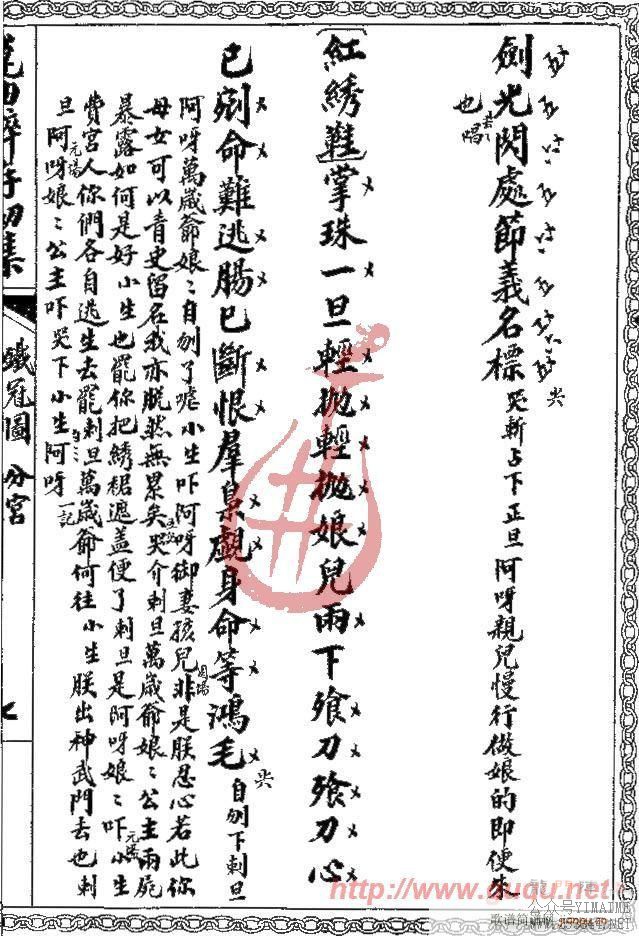 劍光閃處節義名標 哭斬占下正旦阿呀親兒慢行做娘的即便來
也 唱
紅綉鞋 掌珠一旦輕拋輕拋娘兒兩下飱刀飱刀心
已剜命難逃腸已斷恨羣梟覷身命等鴻毛 自刎下刺旦
阿呀萬歲爺娘娘自刎了嘘小生吓阿呀御妻孩兒非是朕忍心若此你
母女可以青史留名我亦脫然無累矣哭介刺旦萬歲爺娘娘公主兩屍
暴露如何是好小生也罷你把綉裙遮盖便了刺旦是阿呀娘娘吓小生
費宮人你們各自逃生去罷刺旦萬歲爺何往小生朕出神武門去也刺
旦阿呀娘娘公主吓哭下小生阿呀
鐵冠圖 分宮
七
http://www.guqu.net
公众号YIMAIME
歌谱简谱网